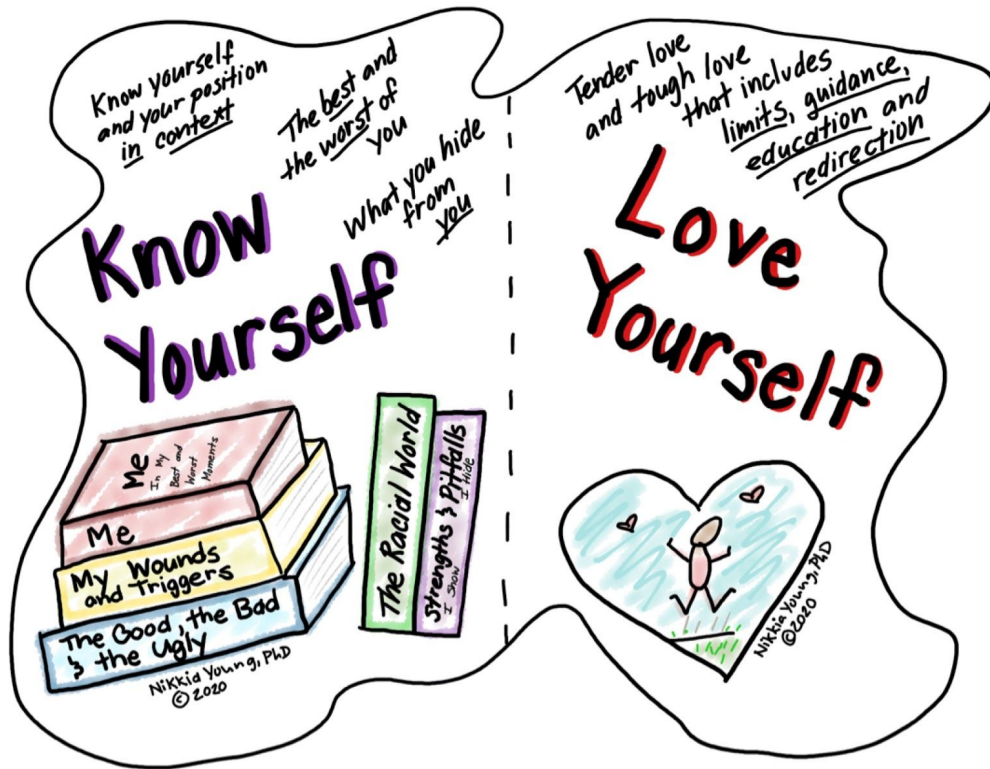 Know yourself
and your position
in context
The best and
the worst of
you
What you hide
from
you
Know
Yourself
Me
In My
Best and
Worst
Moments
Me
My Wounds
and Triggers
The Good, the Bad
& the Ugly
Nikkia Young, PhD
© 2020
The Racial World
Strengths & Pitfalls
I Show
I Hide
Tender love
and tough love
that includes
limits, guidance,
education and
redirection
Love
Yourself
Nikkia Young, PhD
©2020